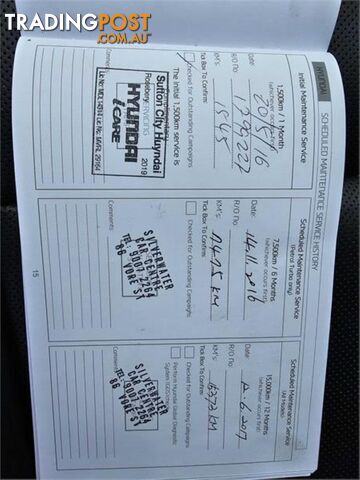 TRADINGPOST
.COM.AU
HYUNDAI
SCHEDULED MAINTENANCE SERVICE HISTORY
Initial Maintenance Service
1,500km / 1 Month
(whichever occurs first)
Date:
20/5/16
R/O No:
KM's:
1545
Tick Box To Confirm
Checked for Outstanding Campaigns
The initial 1,500km service is
Sutton City Hyundai
Rosebery
SERVICING
2019
HYUNDAI
iCARE
Comments:
Scheduled Maintenance Service
(Petrol Turbo only)
7,500km / 6 Months
(whichever occurs first)
Date:
14.11.2016
R/O No:
KM's:
7475 KM
Tick Box To Confirm
Checked for Outstanding Campaigns
Comments:
SILVERWATER
CAR CENTRE
TEL: 9007-2264
86 VORE ST
15
Scheduled Maintenance Service
(All Models)
15,000km / 12 Months
(whichever occurs first)
Date:
12.6.2017
R/O No:
KM's:
Tick Box To Confirm
Checked for Outstanding Campaigns
Perform Hyundai Global Diagnostic
System (GDS) check
Comments:
SILVERWATER
CAR CENTRE
TEL: 9007-2264
86 VORE ST